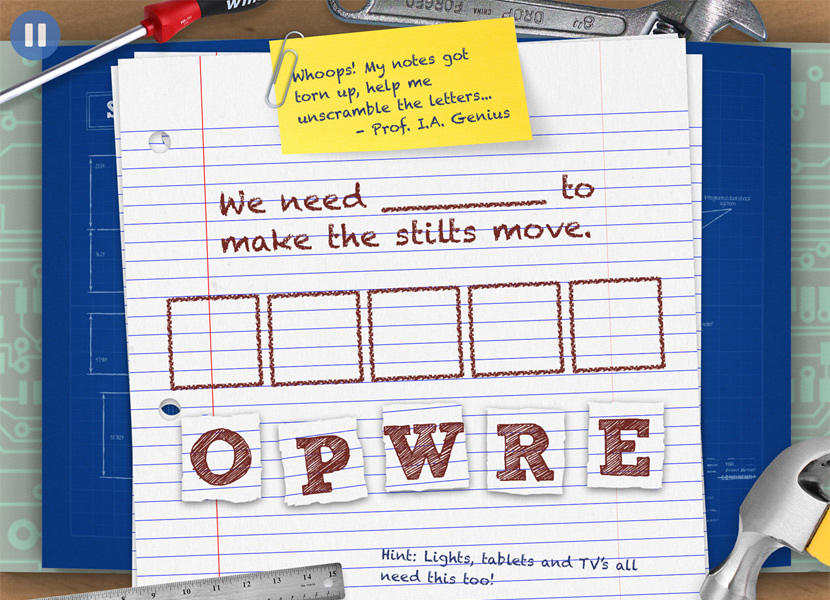 Whoops! My notes got
torn up, help me
unscramble the letters...
- Prof. I.A. Genius
We need ________ to
make the stilts move.
O P W R E
Hint: Lights, tablets and TV's all
need this too!
FORGED
CHINA
DROP
8"
8 9 10 11 12 13 14 15